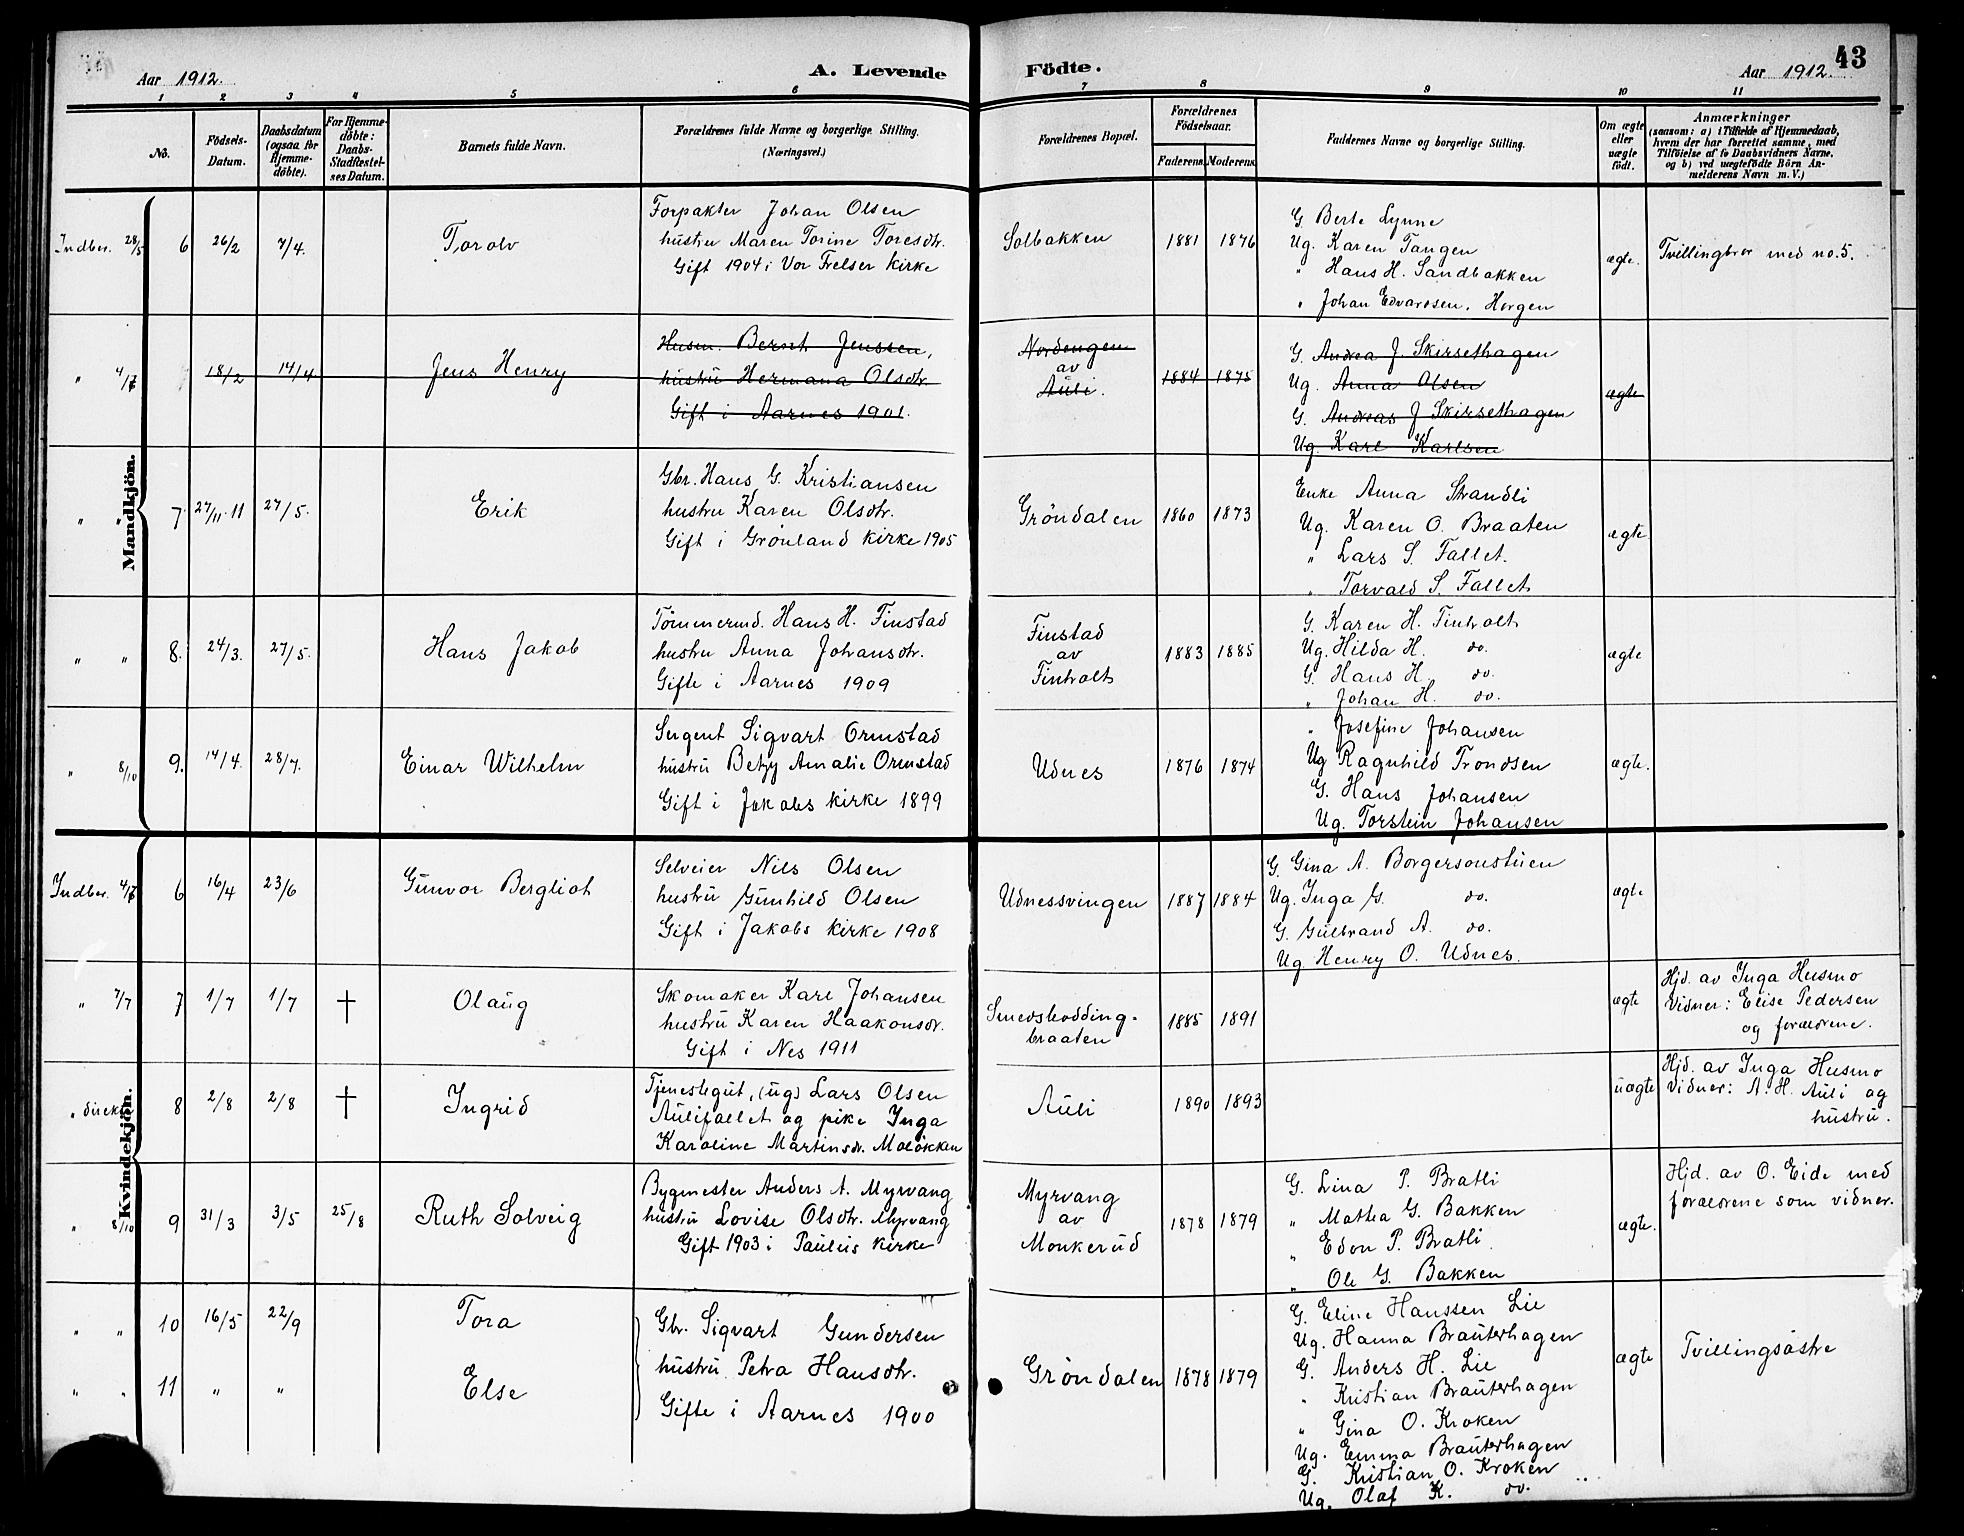 43
Aar 1912.
A. Levende
Födte.
Aar 1912.
1 2 3 4 5 6 7 8 9 10 11
No.
Födsels-
Datum.
Daabsdatum
(ogsaa for
Hjemme-
döbte).
For Hjemme-
döbte:
Daabs-
Stadfæstel-
ses Datum.
Barnets fulde Navn.
Forældrenes fulde Navne og borgerlige Stilling.
(Næringsvei.)
Forældrenes Bopæl.
Forældrenes
Födselsaar.
Faderens. Moderens.
Faddernes Navne og borgerlige Stilling.
Om ægte
eller
uægte
födt.
Anmærkninger
(saasom: a) i Tilfælde af Hjemmedaab,
hvem der har forrettet samme, med
Tilföielse af to Daabsvidners Navne,
og b) ved uægtefödte Börn An-
melderens Navn m. V.)
Mandkjön.
Indber. 28/5 6 26/2 7/4. Torolv
Forpakter Johan Olsen
hustru Maren Torine Toresdtr.
Gift 1904 i Vor Frelser kirke
Solbakken 1881 1876
G. Berte Lynne
Ug. Karen Tangen
" Hans H. Sandbakken
" Johan Edvardsen, Horgen
ægte. Tvillingbror med no. 5.
" 4/7 18/2 14/4 Jens Henry
Husm. Bernt Jenssen,
hustru Hermana Olsdtr.
Gift i Aarnes 1901.
Nordengen
av
Auli.
1884 1875
G. Andrea J. Skirsethagen
Ug. Anna Olsen
G. Andreas J Skirsethagen
Ug. Karl Karlsen
ægte
" " 7 27/11.11 27/5. Erik
Gbr. Hans G. Kristiansen
hustru Karen Olsdtr.
Gift i Grønland kirke 1905
Gröndalen 1860 1873
Enke Anna Strandli
Ug. Karen O. Braaten
" Lars S. Fallet.
" Torvald S. Fallet
ægte
" " 8. 24/3. 27/5. Hans Jakob
Tömmermd. Hans H. Finstad
hustru Anna Johansdtr.
Gifte i Aarnes 1909
Finstad
av
Finholt
1883 1885
G. Karen H. Finholt
Ug. Hilda H. do.
G. Hans H. do.
" Johan H. do.
ægte
" 8/10 9. 14/4. 28/7. Einar Wilhelm
Sergent Sigvart Ormstad
hustru Betzy Amalie Ormstad
Gift i Jakobs kirke 1899
Udnes 1876 1874
" Josefine Johansen
Ug Ragnhild Trondsen
G. Hans Johansen
Ug. Torstein Johansen
ægte.
Kvindekjön.
Indber. 4/7 6 16/4 23/6 Gunvor Bergliot
Selveier Nils Olsen
hustru Gunhild Olsen
Gift i Jakobs kirke 1908
Udnessvingen 1887 1884
G. Gina A. Borgersonstuen
Ug. Inga G. do.
G. Gulbrand A. do.
Ug. Henry O. Udnes.
ægte
" 7/7 7 1/7 1/7 † Olaug
Skomaker Karl Johansen
hustru Karen Haakonsdr.
Gift i Nes 1911
Smedshodding-
braaten
1885 1891
ægte
Hjd. av Inga Husmo
Vidner: Elise Pedersen
og forældrene.
" direkte 8 2/8 2/8 † Ingrid
Tjenestegut, (ug) Lars Olsen
Aulifallet og pike Inga
Karoline Martinsdr. Moløkken
Auli 1890 1893
uægte
Hjd. av Inga Husmo
Vidner: A. H. Auli og
hustru.
" 8/10 9 31/3 3/5 25/8 Ruth Solveig
Bygmester Anders A. Myrvang
hustru Lovise Olsdtr. Myrvang
Gift 1903 i Paulus kirke
Myrvang
av
Monkerud
1878 1879
G. Lina P. Bratli
" Mathea G. Bakken
" Edon P. Bratli
" Ole G. Bakken
ægte.
Hjd. av O. Eide med
forældrene som vidner.
" " 10 16/5 22/9 Tora
" " 11 " " Else
Gbr. Sigvart Gundersen
hustru Petra Hansdtr.
Gifte i Aarnes 1900
Gröndalen 1878 1879
G. Eline Hanssen Lie
Ug. Hanna Brauterhagen
G. Anders H. Lie
" Kristian Brauterhagen
" Gina O. Kroken
Ug. Emma Brauterhagen
G. Kristian O. Kroken
Ug. Olaf K. do.
ægte Tvillingsöstre